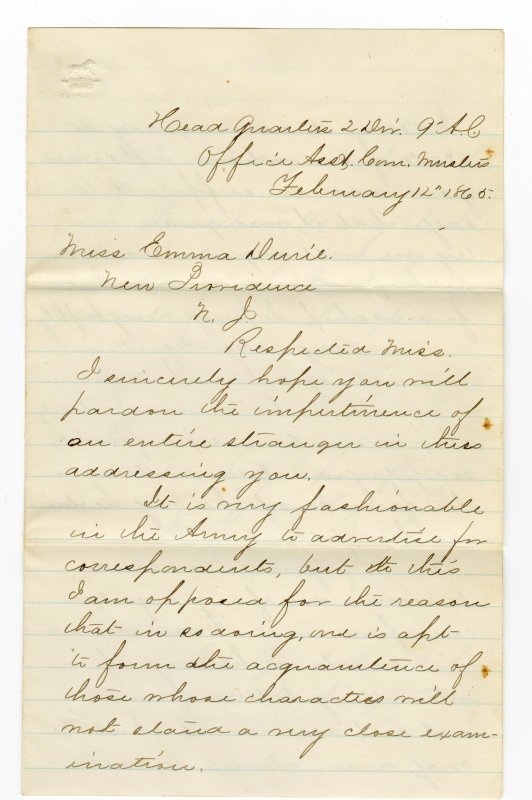 Head Quarters 2 Div. 9" A.C
Office Asst. Com. Musters
February 12" 1865.
Miss Emma Durie.
New Providence
N. J.
Respected Miss.
I sincerely hope you will
pardon the impertinence of
an entire stranger in thus
addressing you.
It is very fashionable
in the Army to advertise for
correspondents, but to this
I am opposed for the reason
that in so doing, one is apt
to form the acquaintence of
those whose characters will
not stand a very close exam-
ination.